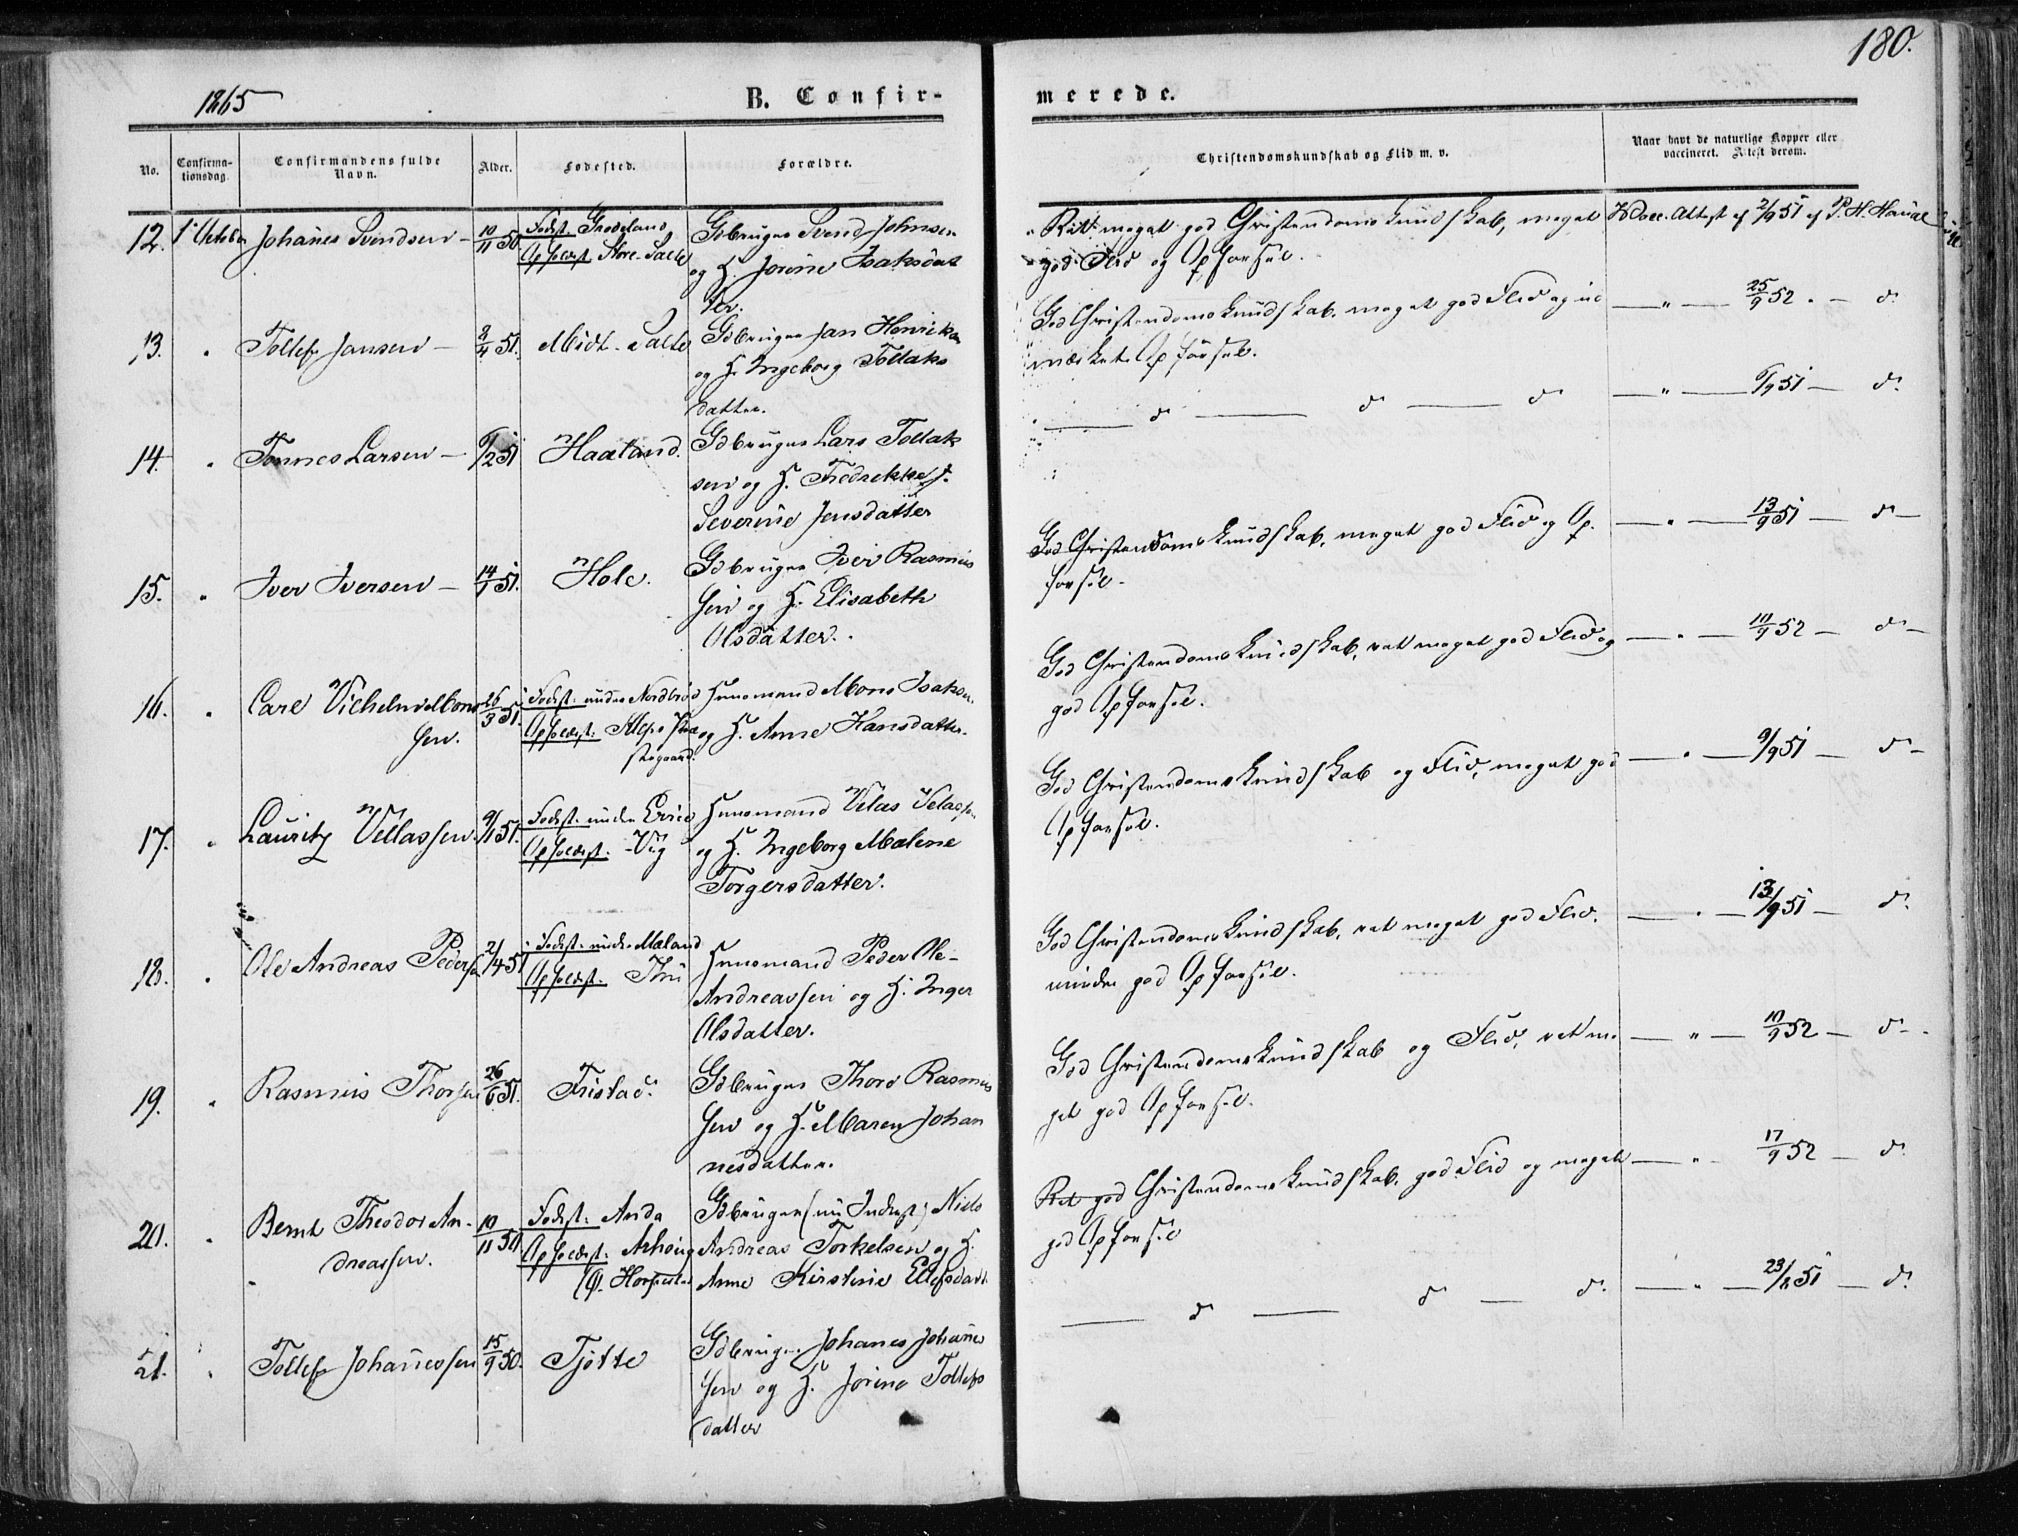 180.
1865
B. Confir-
merede.
No.
Confirma-
tionsdag.
Confirmandens fulde
Navn.
Alder.
Fødested.
Forældre.
Christendomskundskab og Flid m. v.
Naar havt de naturlige Kopper eller
vaccineret. Attest derom.
12. 1 October Johanes Svendsen 10/11 50 Fødest. Opholdst. Store Salte Gdbruger Svend Johnsen
og H. Jorine Isaksdat
ter.
meget god Christendomskundskab, meget
god Flid og Opførsel.
Vacc. Attest af 2/9 51 af P. H.
13. " Tollef Jansen 2/4 51. Midt-Salte Gdbruger Jan Henriksen
og H. Ingeborg Tollaks
datter.
God Christendomskundskab, meget god Flid og ud
mærket Opførsel.
" 25/9 52. d.
14. " Tønnes Larsen 6/2 51 Haaland. Gdbruger Lars Tollak
sen og H. Fredrekke J.
Severine Jensdatter
d d d
" 6/9 51 d.
15. " Iver Iversen 14/ 51. Hole. Gdbruger Iver Rasmus
sen og H. Elisabeth
Olsdatter.
God Christendomskundskab, meget god Flid og Op-
førsel.
" 13/9 51 d
16. " Carl Vilhelm Mons
sen. 26/3 51. Fødest: under Nordbrød
Opholdst: Husmand Mons Isaksen
og H. Anne Hansdatter.
God Christendomskundskab, ret meget god Flid og
god Opførsel.
" 11/9 52 d
17. " Lauritz Vellassen. 9/1 51. Fødest. under
Opholdst. Vig Husmand Velas Velassen
og H. Ingeborg Malene
Torgersdatter.
God Christendomskundskab og Flid, meget god
Opførsel.
" 9/9 51 d
18. " Ole Andreas Pedersen 2/4 51 Fødest. under Mæland
Opholdst. Thu Husmand Peder Ole-
Andreassen og H. Inger
Olsdatter.
God Christendomskundskab, ret meget god Flid,
mindre god Opførsel.
" 13/9 51 d.
19. " Rasmus Thorsen 26/6 51. Tristad. Gdbruger Thore Rasmus
sen og H. Maren Johan
nesdatter.
God Christendomskundskab og Flid, ret me
get god Opførsel.
" 10/9 52 d
20. " Bernt Theodor An-
dreassen. 10/11 50 Fødest: Anda
Opholdst: Gdbruger (nu Inderst) Niels
Andreas Torkelsen og H.
Anne Kirstine Ellefsdatt.
Ret god Christendomskundskab, god Flid og meget
god Opførsel
" 17/9 52 d.
21. " Tollef Johanessen 15/9 50. Tjøtte Gdbruger Johanes Johanes
sen og H. Jorine Tollefs
datter
d d d.
" 23/8 51 d.